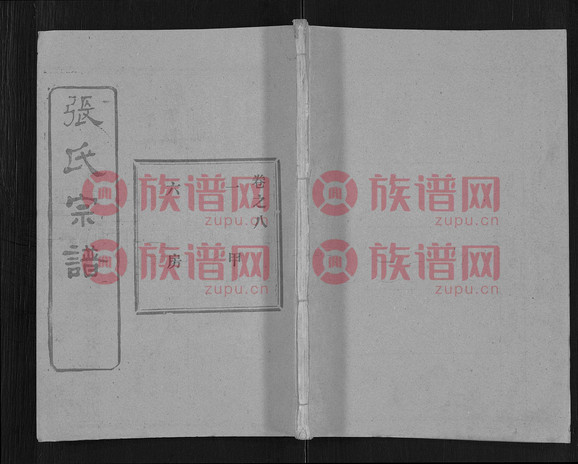 張氏宗譜
卷之八
一甲
六房
族谱网
zupu.cn
族谱网
zupu.cn
族谱网
zupu.cn
族谱网
zupu.cn